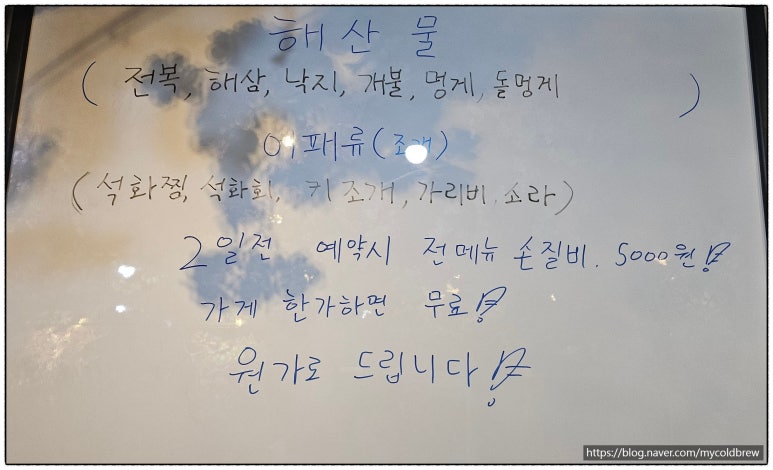 해산물
( 전복, 해삼, 낙지, 개불, 멍게, 돌멍게 )
어패류(조개)
(석화찜, 석화회, 키조개, 가리비. 소라)
2일전 예약시 전메뉴 손질비. 5000원!
가게 한가하면 무료!
원가로 드립니다!
https://blog.naver.com/mycoldbrew